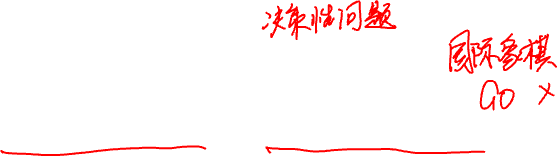 决策性问题
国际象棋
GO ×